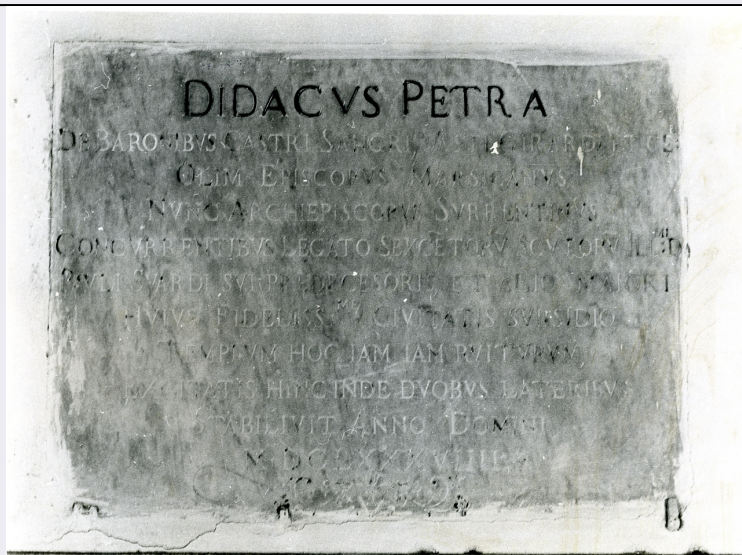 DIDACVS PETRA
DE BARONIBVS CASTRI SANGRI
OLIM EPISCOPVS MARSICANVS
NVNC ARCHIEPISCOPVS SVRRENTINVS
CONCVRRENTIBVS LEGATO
PAVLI SVARDI SVI PREDECESORIS ET ALIO
HVIVS FIDELISS. CIVITATIS SVBSIDIO
TEMPLVM HOC IAM IAM RVITVRVM
EXCITATIS HINC INDE DVOBVS LATERIBVS
STABILIVIT ANNO DOMINI
M DCLXXXVIIII